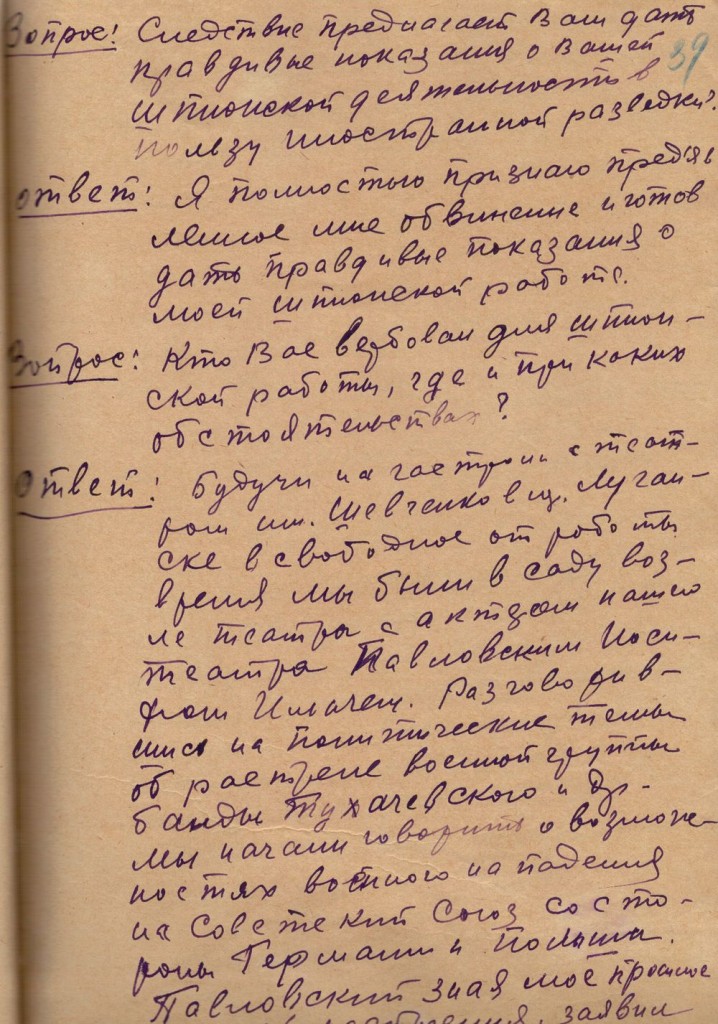 Вопрос: Следствие предлагает Вам дать
правдивые показания о Вашей
39
шпионской деятельность в
пользу иностранной разведки?
Ответ: Я полностью признаю предъяв
ленное мне обвинение и готов
дать правдивые показания о
моей шпионской работе.
Вопрос: Кто Вас вербовал для шпион-
ской работы, где и при каких
обстоятельствах?
Ответ: Будучи на гастроли с теат-
ром им. Шевченко в г. Луган-
ске в свободное от работы
время мы были в саду воз-
ле театра с актером нашего
театра Павловским Иоси-
фом Ильичем. Разговорив-
шись на политические темы
об растреле военной группы
банды Тухачевского и др.
мы начали говорить о возмож-
ностях военного нападения
на Советский Союз со сто-
роны Германии и Польши.
Павловский зная моё прошлое
заявил